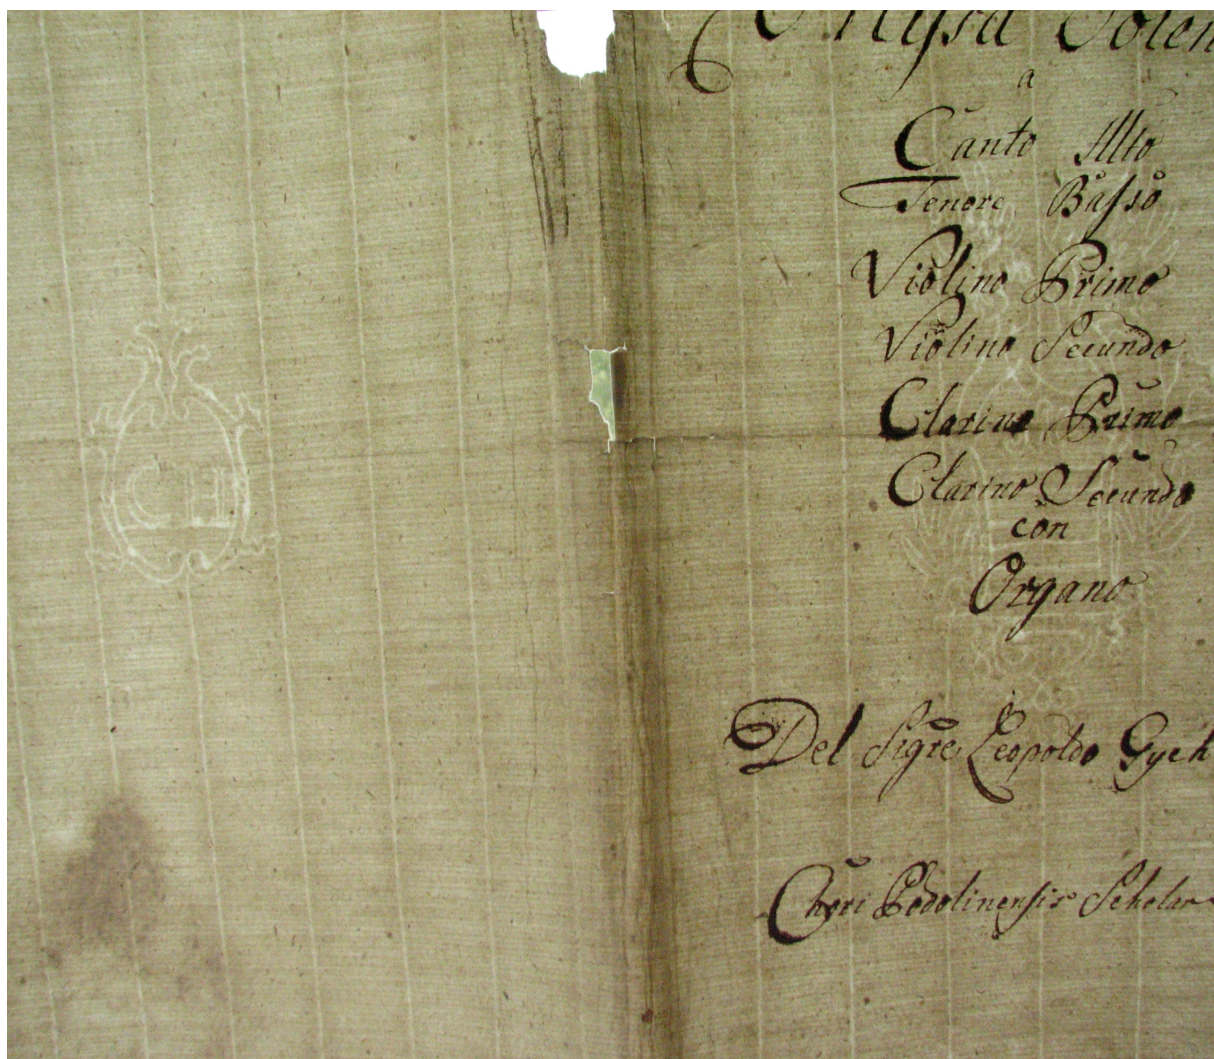 Missa Solen
a
Canto Alto
Tenore Basso
Violino Primo
Violino Secundo
Clarino Primo
Clarino Secundo
con
Organo
Del Sigre Leopoldo Gych
Chori Podolinensis Scholar